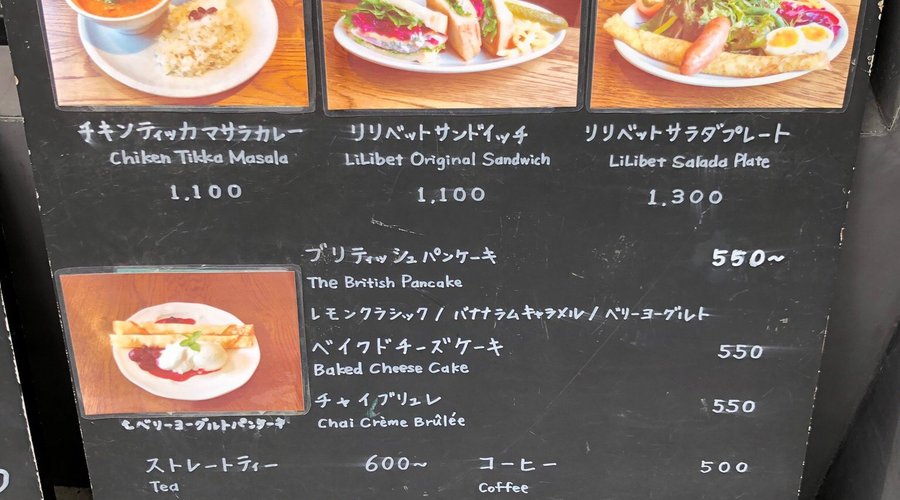 チキンティッカマサラカレー
Chiken Tikka Masala
1,100
リリベットサンドイッチ
LiLibet Original Sandwich
1,100
リリベットサラダプレート
LiLibet Salada Plate
1.300
ブリティッシュパンケーキ 550~
The British Pancake
レモンクラシック / バナナラムキャラメル / ベリーヨーグルト
ベイクドチーズケーキ 550
Baked Cheese Cake
チャイブリュレ 550
Chai Crème Brûlée
ベリーヨーグルトパンケーキ
ストレートティー 600~
Tea
コーヒー 500
Coffee